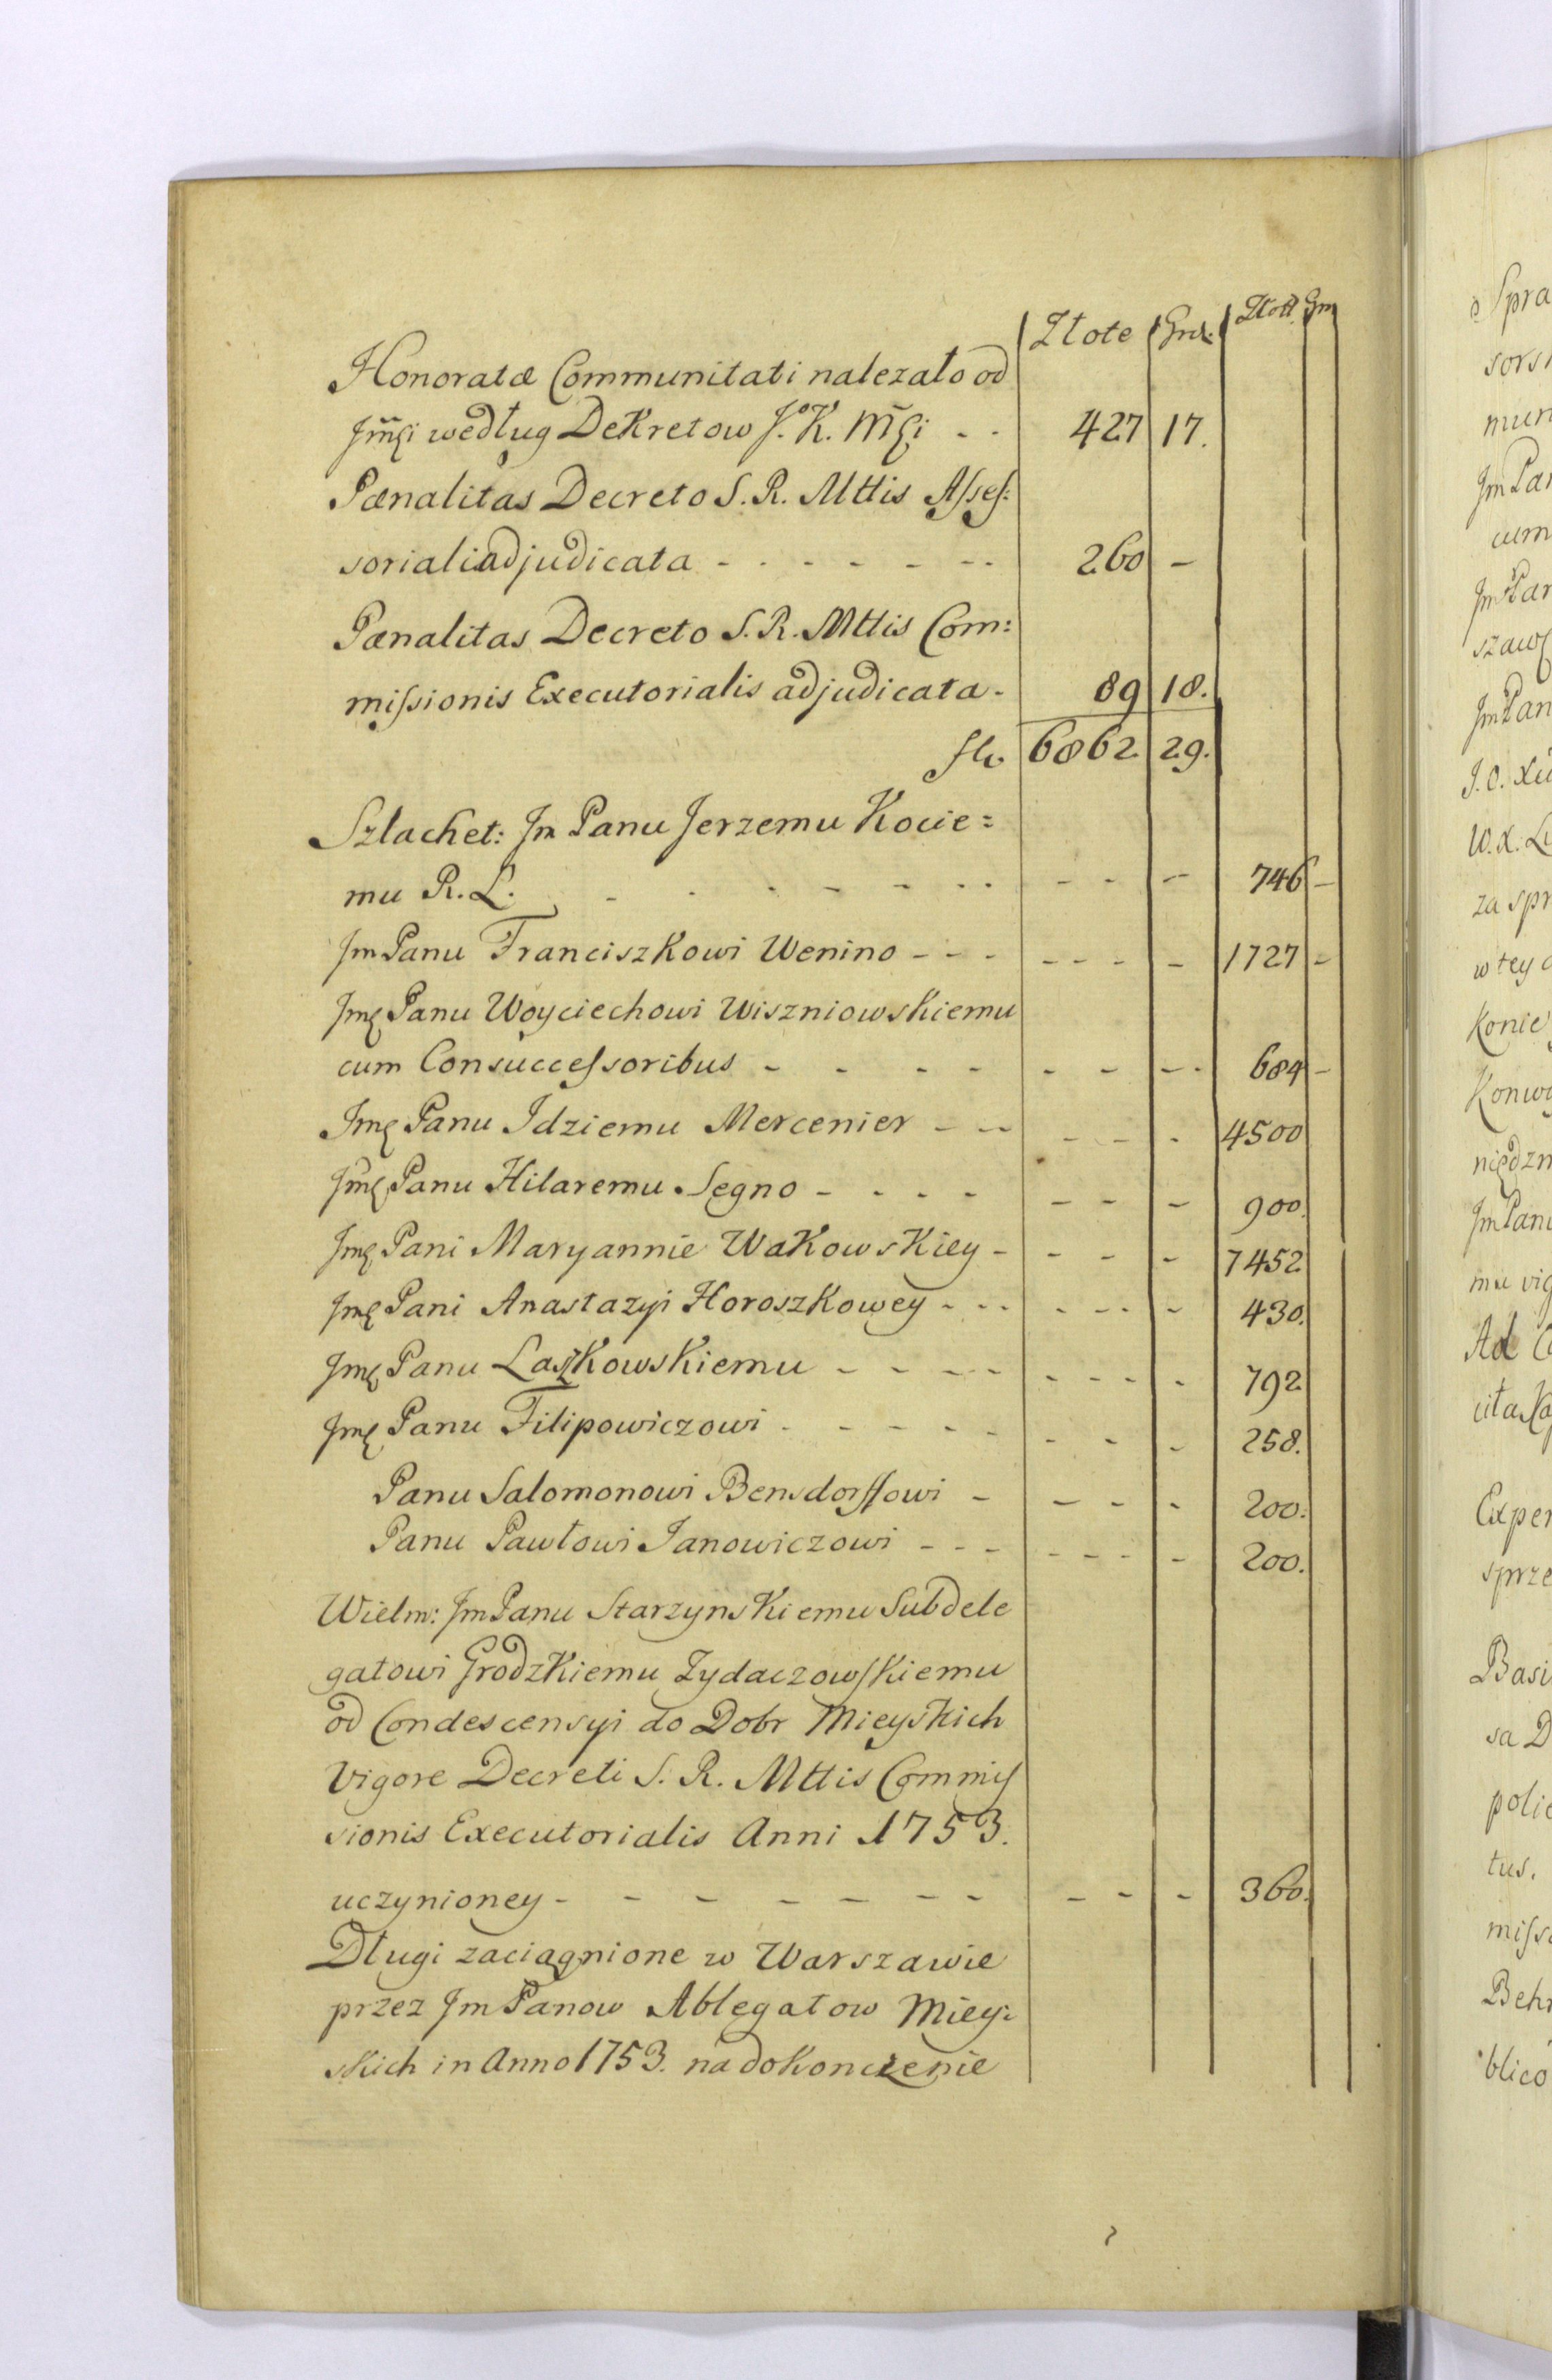 Złote Grd. Złott. Grn
Honoratæ Communitati nalezało od
Jm̃ści według DeKretow J. K. Mści - - 427 17.
Pænalitas Decreto S. R. Mttis Asses:
soriali adjudicata - - - - - - 260 -
Pænalitas Decreto S. R. Mttis Com:
missionis Executorialis adjudicata - 89 18.
flo. 6862 29.
Szlachet: Jm Panu Jerzemu Kocie=
mu R. L. - - - - - - - - - 746 -
Jm Panu FranciszKowi Wenino - - - - - - - 1727 -
Jmę Panu Woyciechowi Wiszniowskiemu
cum Consuccessoribus - - - - - - - - 684 -
Jmę Panu Jdziemu Mercenier - - - - - 4500
Jmę Panu Hilaremu Segno - - - - - - - 900.
Jmę Pani Maryannie WaKowsKiey - - - - 7452
Jmę Pani Anastazyi HoroszKowey - - - - - - - 430.
Jmę Panu LaszKowsKiemu - - - - - - - - 792
Jmę Panu Filipowiczowi - - - - - - - - 258.
Panu Salomonowi Bensdorffowi - - - - 200.
Panu Pawłowi Janowiczowi - - - - - - - 200.
Wielm: Jm Panu StarzynsKiemu Subdele
gatowi GrodzKiemu ZydaczowsKiemu
od Condescensyi do Dobr Mieyskich
Vigore Decreti S. R. Mttis Commis
sionis Executorialis Anni 1753.
uczynioney - - - - - - - - - - 360.
Długi zaciągnione w Warszawie
przez Jm Panow Ablegatow Miey:
skich in Anno 1753. na doKonczenie
Spra
sors
mun
Jm Pan
cum
Jm Pan
szaws
Jm Pan
J. O.
W. X.
za spr
w tey
Konie
Konwo
niędzn
Jm Pan
mu vig
Ad C
Exper
sprze
Basi
sa D
polic
tus.
misso
Behr
blico